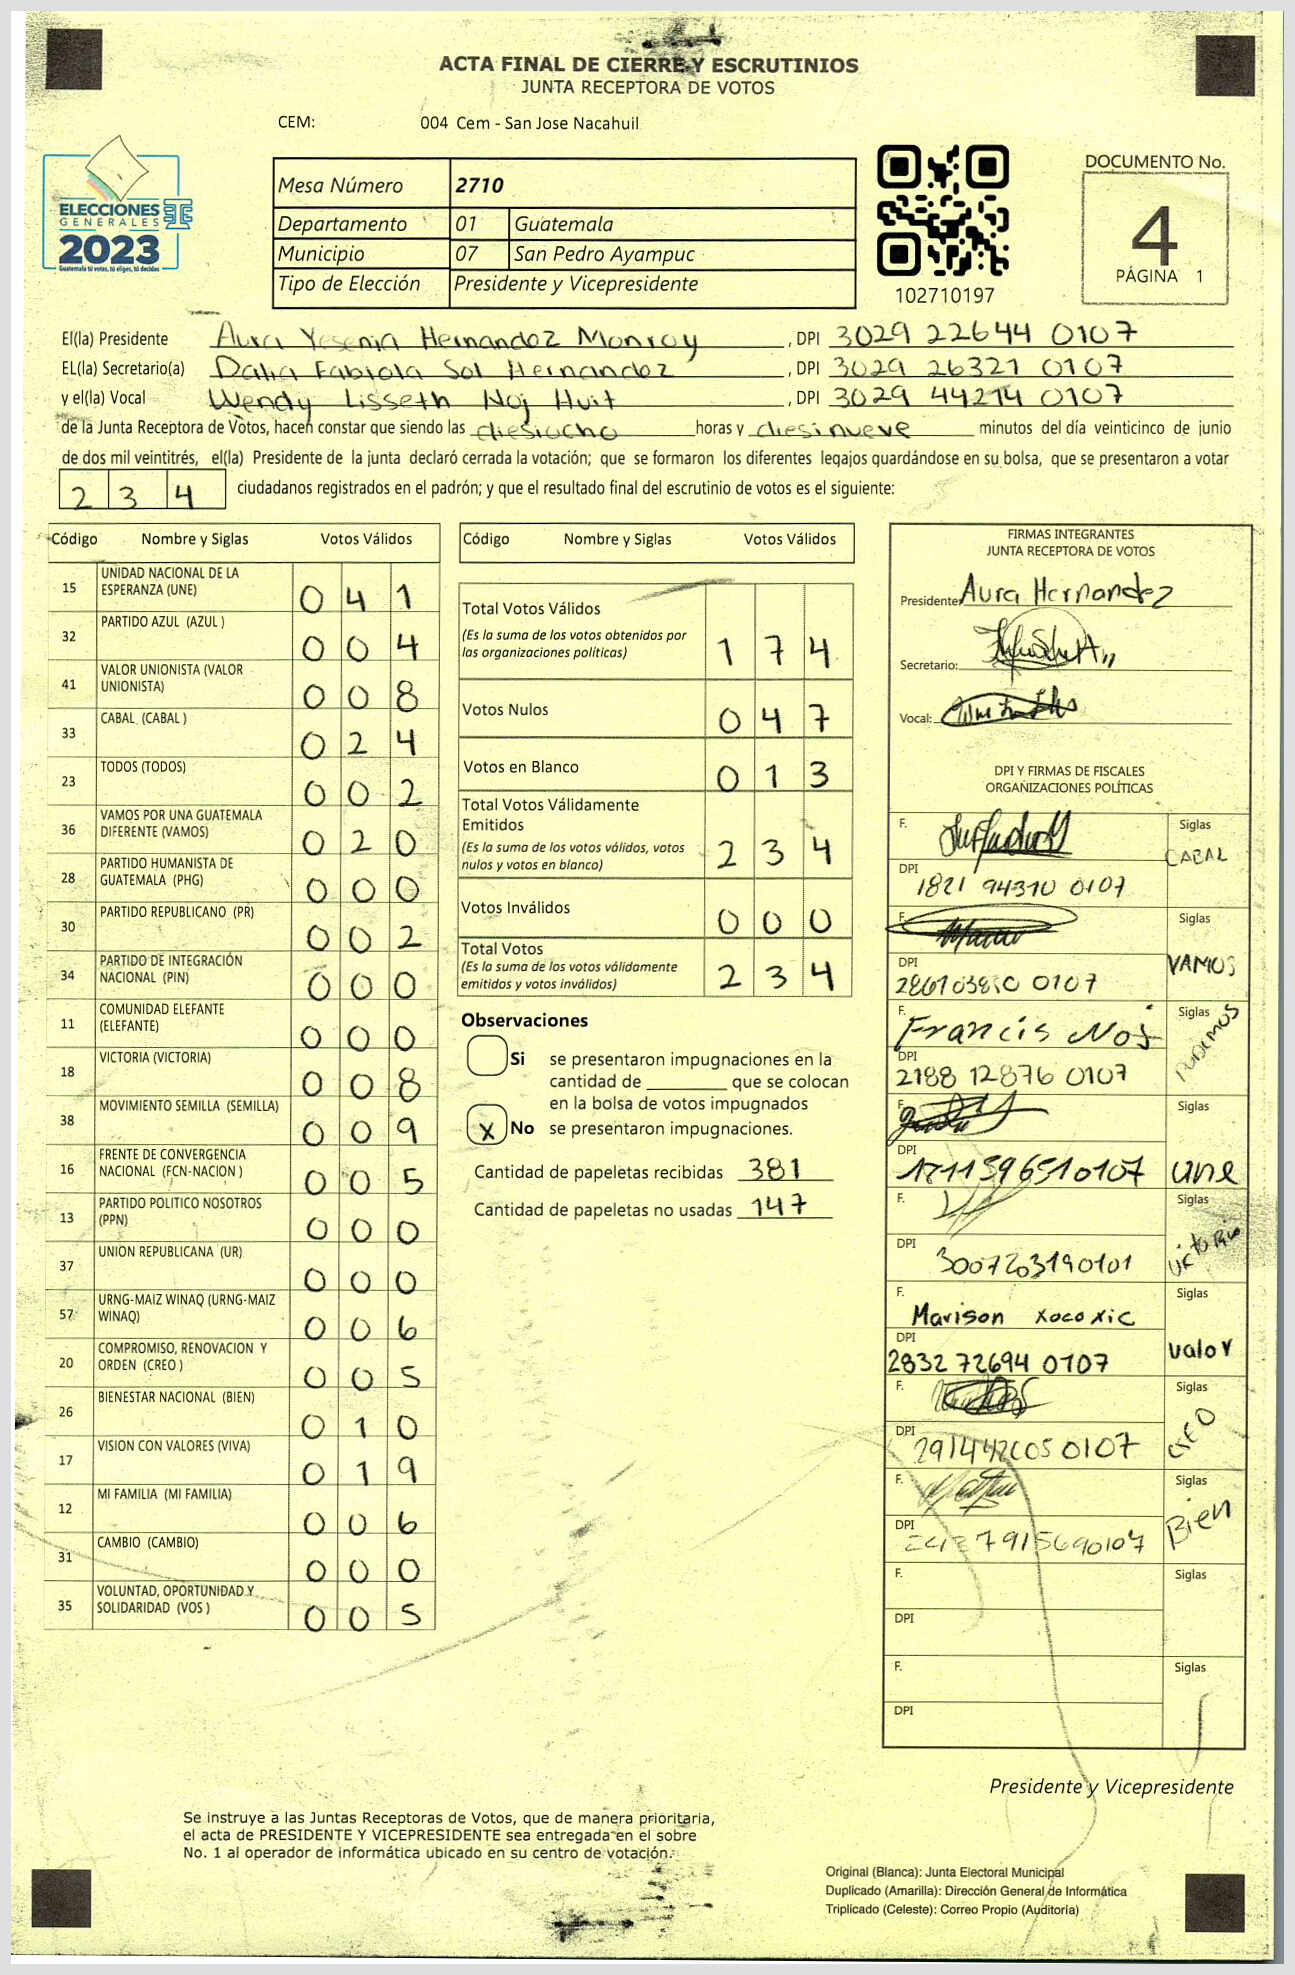 ACTA FINAL DE CIERRE Y ESCRUTINIOS
JUNTA RECEPTORA DE VOTOS
CEM: 004 Cem - San Jose Nacahuil
ELECCIONES
GENERALES
2023
Guatemala tú votas, tú eliges, tú decides
Mesa Número 2710
Departamento 01 Guatemala
Municipio 07 San Pedro Ayampuc
Tipo de Elección Presidente y Vicepresidente
102710197
DOCUMENTO No.
4
PÁGINA 1
El(la) Presidente Aura Yesenia Hernandez Monroy, DPI 3029 22644 0107
EL(la) Secretario(a) Dalia Fabiola Sol Hernandez, DPI 3029 26321 0107
y el(la) Vocal Wendy Lisseth Noj Huit, DPI 3029 44214 0107
de la Junta Receptora de Votos, hacen constar que siendo las diesiocho horas y diesinueve minutos del día veinticinco de junio
de dos mil veintitrés, el(la) Presidente de la junta declaró cerrada la votación; que se formaron los diferentes legajos guardándose en su bolsa, que se presentaron a votar
2 3 4 ciudadanos registrados en el padrón; y que el resultado final del escrutinio de votos es el siguiente:
Código Nombre y Siglas Votos Válidos
15 UNIDAD NACIONAL DE LA
ESPERANZA (UNE) 0 4 1
32 PARTIDO AZUL (AZUL ) 0 0 4
41 VALOR UNIONISTA (VALOR
UNIONISTA) 0 0 8
33 CABAL (CABAL ) 0 2 4
23 TODOS (TODOS) 0 0 2
36 VAMOS POR UNA GUATEMALA
DIFERENTE (VAMOS) 0 2 0
28 PARTIDO HUMANISTA DE
GUATEMALA (PHG) 0 0 0
30 PARTIDO REPUBLICANO (PR) 0 0 2
34 PARTIDO DE INTEGRACIÓN
NACIONAL (PIN) 0 0 0
11 COMUNIDAD ELEFANTE
(ELEFANTE) 0 0 0
18 VICTORIA (VICTORIA) 0 0 8
38 MOVIMIENTO SEMILLA (SEMILLA) 0 0 9
16 FRENTE DE CONVERGENCIA
NACIONAL (FCN-NACION ) 0 0 5
13 PARTIDO POLITICO NOSOTROS
(PPN) 0 0 0
37 UNION REPUBLICANA (UR) 0 0 0
57 URNG-MAIZ WINAQ (URNG-MAIZ
WINAQ) 0 0 6
20 COMPROMISO, RENOVACION Y
ORDEN (CREO ) 0 0 5
26 BIENESTAR NACIONAL (BIEN) 0 1 0
17 VISION CON VALORES (VIVA) 0 1 9
12 MI FAMILIA (MI FAMILIA) 0 0 6
31 CAMBIO (CAMBIO) 0 0 0
35 VOLUNTAD, OPORTUNIDAD Y
SOLIDARIDAD (VOS ) 0 0 5
Código Nombre y Siglas Votos Válidos
Total Votos Válidos
(Es la suma de los votos obtenidos por
las organizaciones políticas) 1 7 4
Votos Nulos 0 4 7
Votos en Blanco 0 1 3
Total Votos Válidamente
Emitidos
(Es la suma de los votos válidos, votos
nulos y votos en blanco) 2 3 4
Votos Inválidos 0 0 0
Total Votos
(Es la suma de los votos válidamente
emitidos y votos inválidos) 2 3 4
Observaciones
Si se presentaron impugnaciones en la
cantidad de ________ que se colocan
en la bolsa de votos impugnados
X No se presentaron impugnaciones.
Cantidad de papeletas recibidas 381
Cantidad de papeletas no usadas 147
FIRMAS INTEGRANTES
JUNTA RECEPTORA DE VOTOS
Presidente: Aura Hernandez
Secretario:
Vocal:
DPI Y FIRMAS DE FISCALES
ORGANIZACIONES POLÍTICAS
F. Siglas
CABAL
DPI
1821 94310 0107
F. Siglas
VAMOS
DPI
0107
F. Francis Noj Siglas
PODEMOS
DPI
2188 12876 0107
F. Siglas
DPI
1711596510107 une
F. Siglas
Victoria
DPI
3007203190101
F. Siglas
Marison xocoxic
valor
DPI
2832 72694 0107
F. Siglas
CREO
DPI
291442005 0107
F. Siglas
Bien
DPI
F. Siglas
DPI
F. Siglas
DPI
Presidente y Vicepresidente
Se instruye a las Juntas Receptoras de Votos, que de manera prioritaria,
el acta de PRESIDENTE Y VICEPRESIDENTE sea entregada en el sobre
No. 1 al operador de informática ubicado en su centro de votación.
Original (Blanca): Junta Electoral Municipal
Duplicado (Amarilla): Dirección General de Informática
Triplicado (Celeste): Correo Propio (Auditoría)